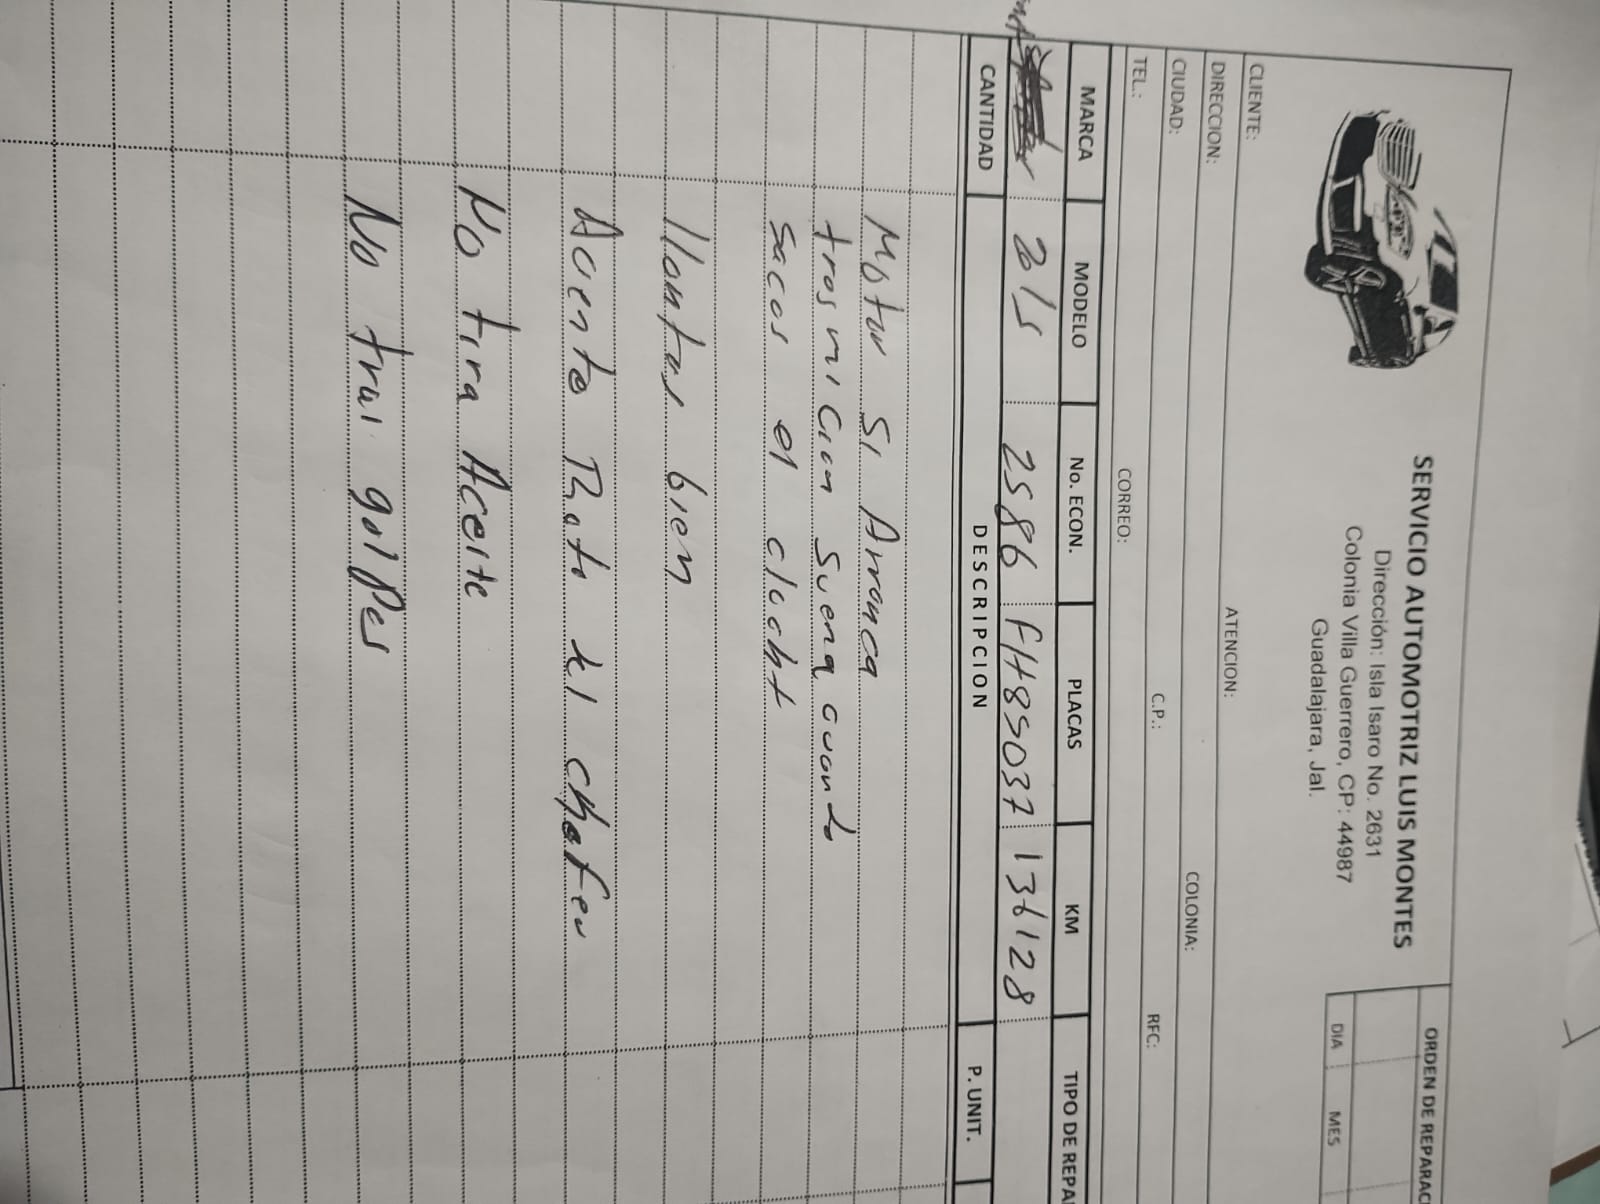 SERVICIO AUTOMOTRIZ LUIS MONTES
Dirección: Isla Isaro No. 2631
Colonia Villa Guerrero, CP: 44987
Guadalajara, Jal.
ORDEN DE REPARAC
DIA MES
CLIENTE: ATENCION:
DIRECCION: COLONIA:
CIUDAD: C.P.: RFC:
TEL.: CORREO:
MARCA MODELO No. ECON. PLACAS KM TIPO DE REPA
2586 136128
CANTIDAD DESCRIPCION P. UNIT.
Motor Si Arranca
trasmicion Suena cuando
sacas el clocht
llantas bien
Aciento Roto del chofeu
No tira Aceite
No trai golpes